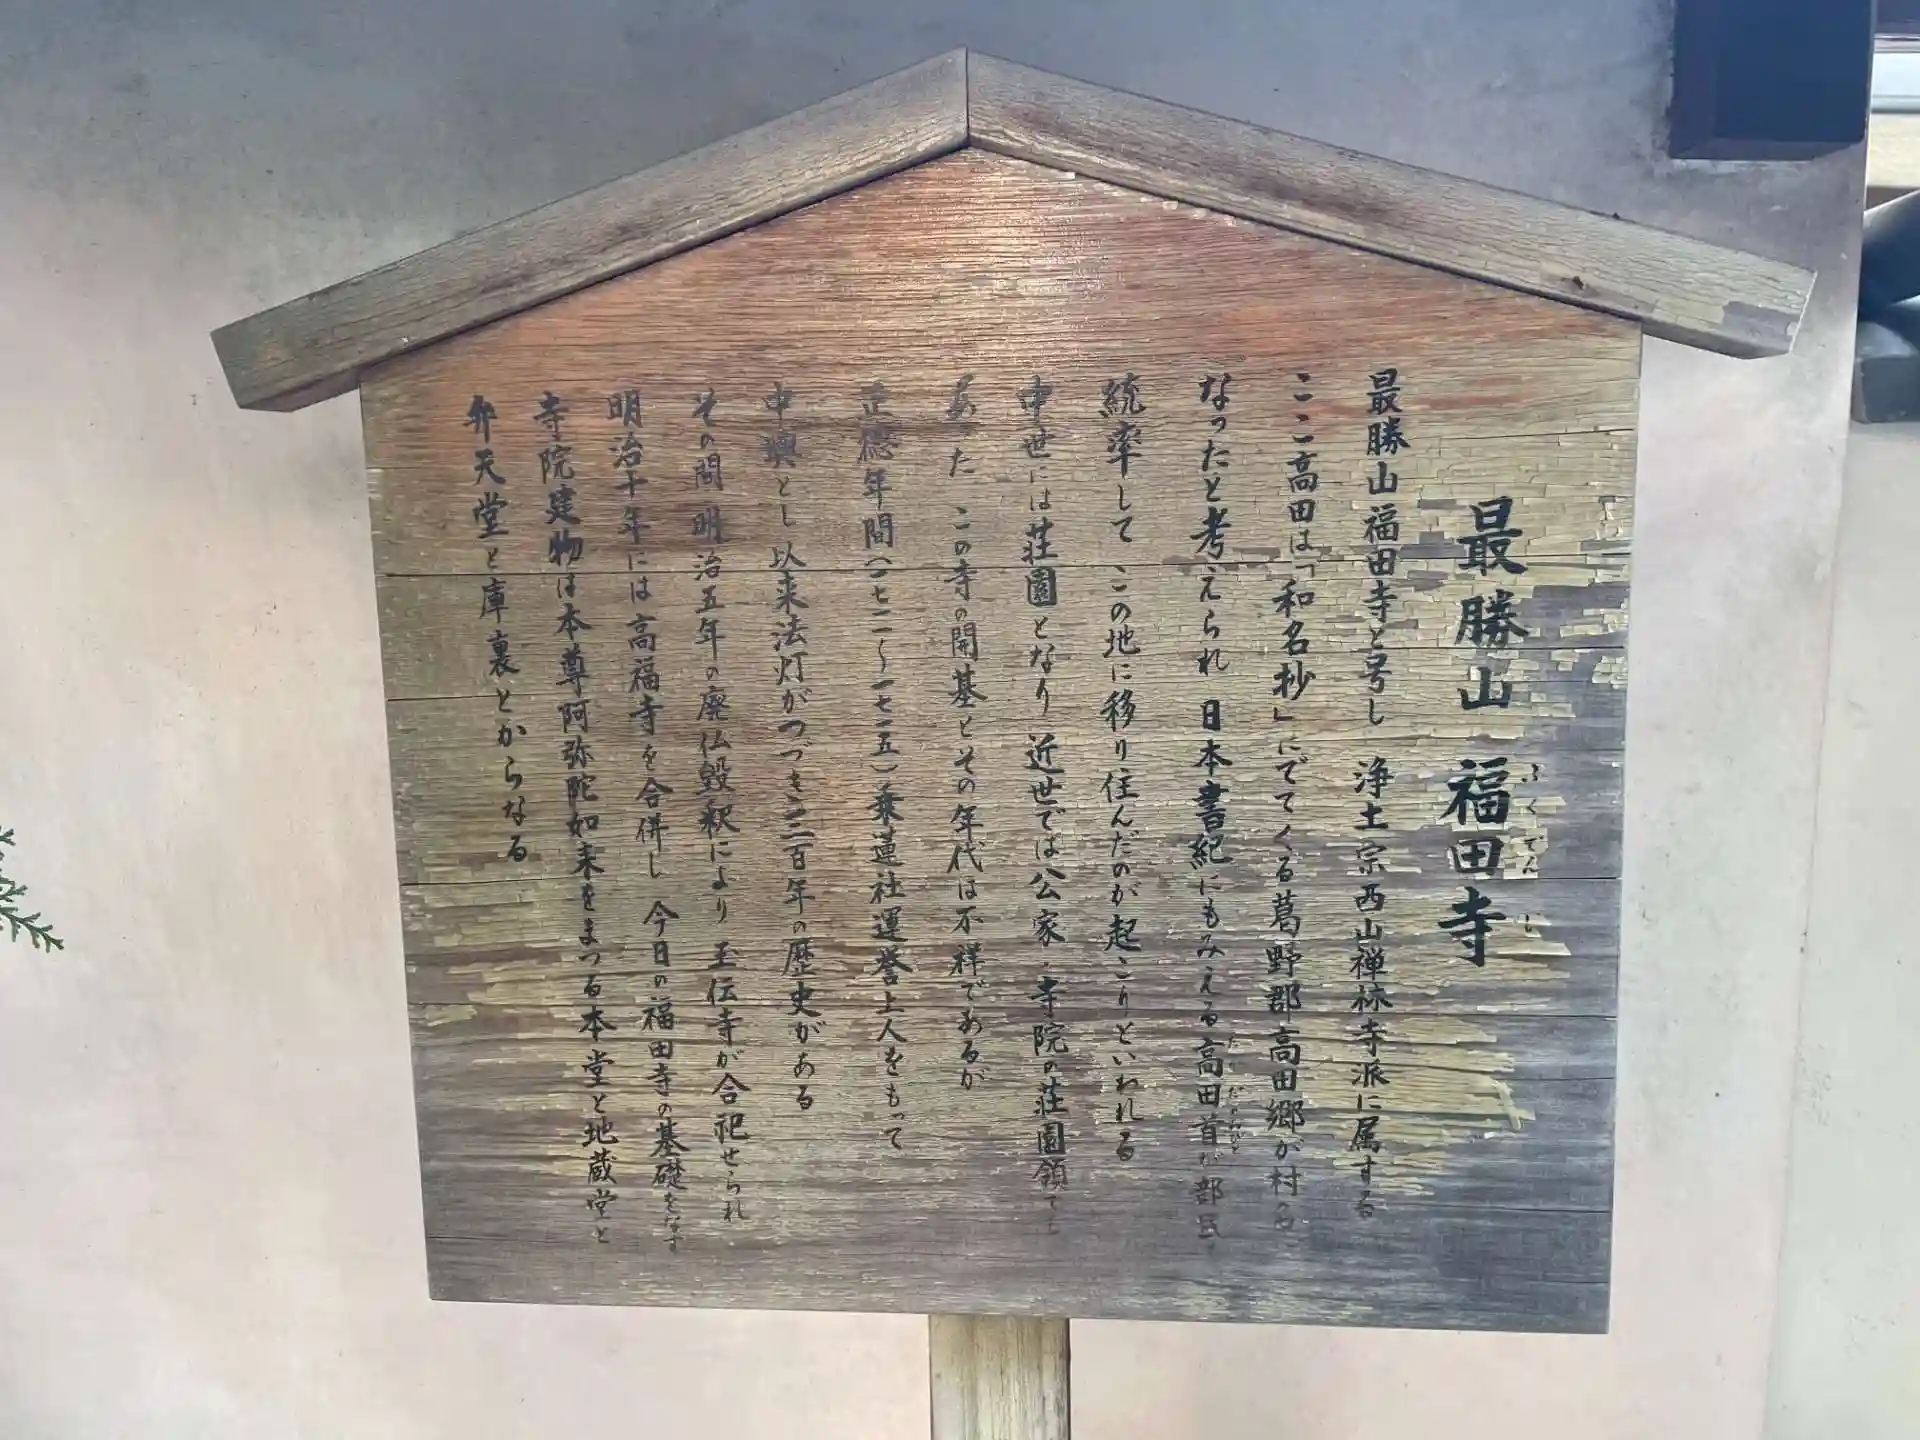 最勝山 福田寺
ふくでん じ
最勝山福田寺と号し 浄土宗西山禅林寺派に属する
ここ高田は「和名抄」にでてくる葛野郡高田郷が村名
なったと考えられ 日本書紀にもみえる高田首が部民
統率して この地に移り住んだのが起こりといわれる
中世には荘園となり 近世では公家・寺院の荘園領でも
あった この寺の開基とその年代は不祥であるが
正徳年間(一七一一〜一七一五)乗蓮社運誉上人をもって
中興とし 以来法灯がつづき二百年の歴史がある
その間明治五年の廃仏毀釈により 玉伝寺が合祀せられ
明治十年には高福寺を合併し 今日の福田寺の基礎をなす
寺院建物は本尊阿弥陀如来をまつる本堂と地蔵堂と
弁天堂と庫裏とからなる